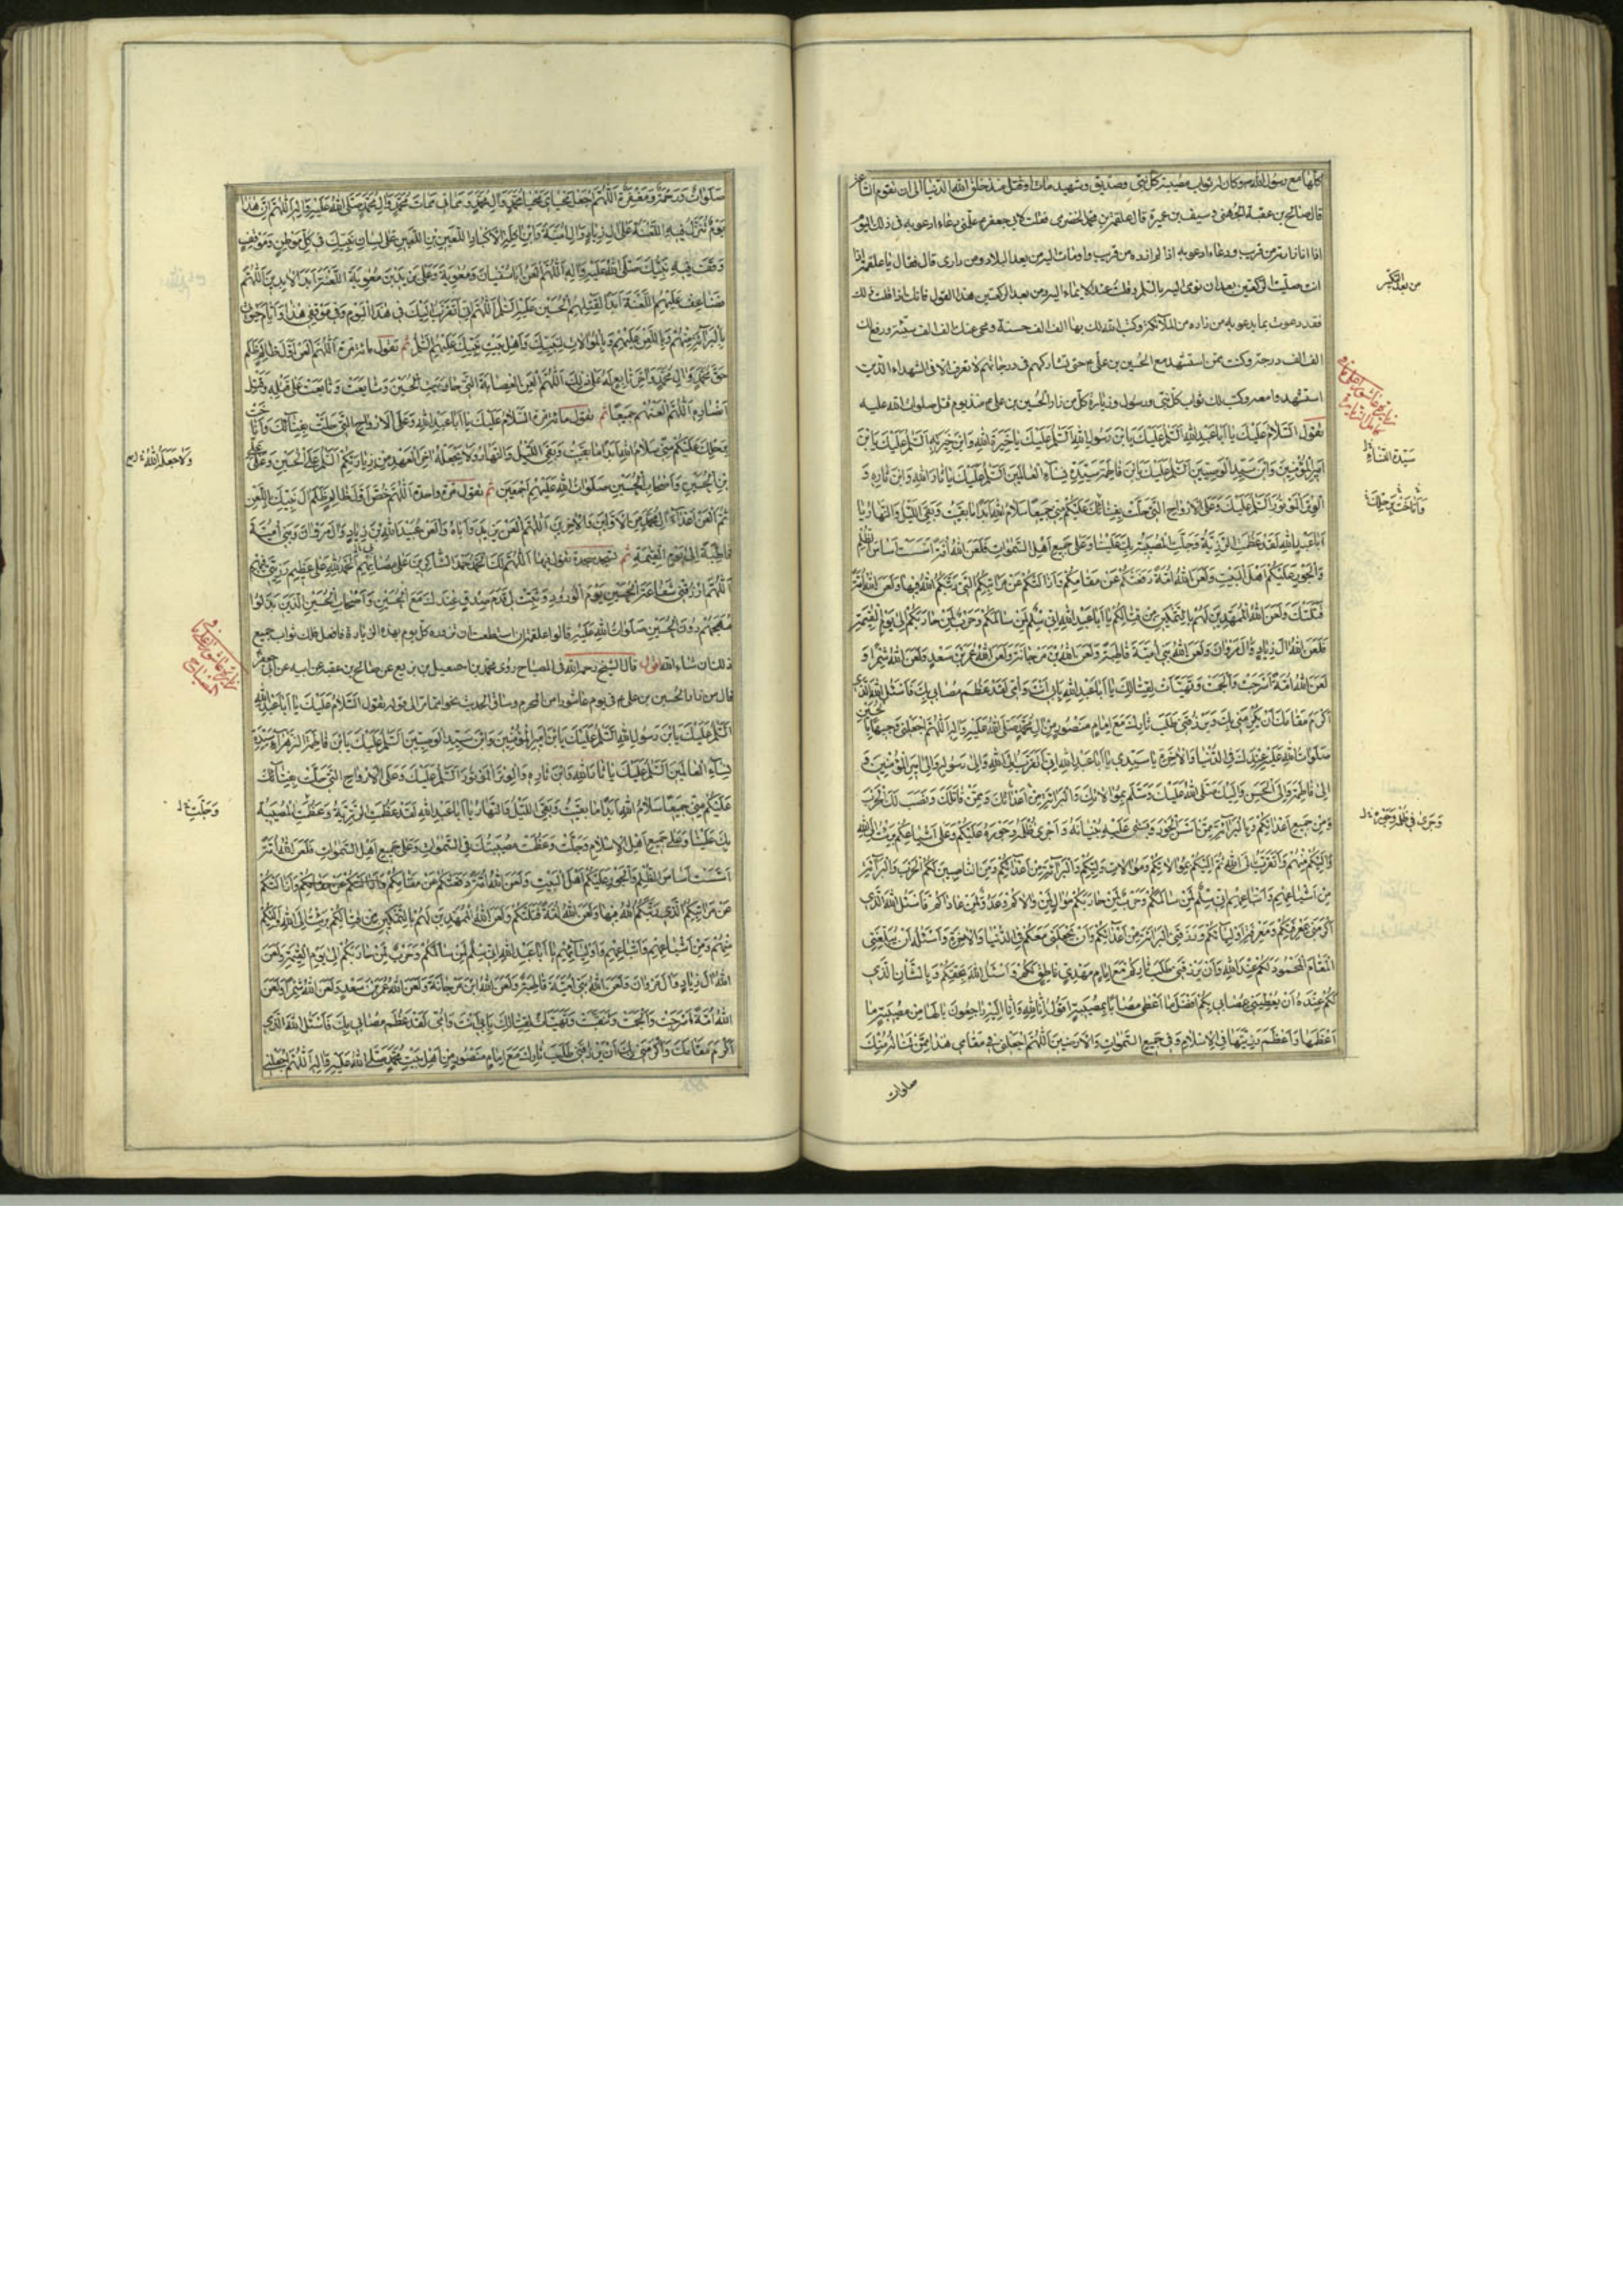 كلها مع رسول الله وكان له ثواب مصيبة كل نبي وصديق وشهيد مات او قتل منذ خلق الله الدنيا الى ان تقوم الساعة
قال صالح بن عقبة الجهني وسيف بن عميرة قال علقمة بن محمد الحضرمي فقلت لابي جعفر علمني دعاء ادعو به في ذلك اليوم
اذا انا زرته من قريب ودعاء ادعو به اذا لم ازره من قريب واومات اليه من بعد البلاد ومن داري قال فقال يا علقمة اذا
انت صليت الركعتين بعد ان تومي اليه بالسلم وقلت عند الايماء اليه ومن بعد الركعتين هذا القول فانك اذا قلت ذلك
فقد دعوت بما يدعو به من زاره من الملائكة وكتب الله لك بها الف الف حسنة ومحى عنك الف الف سيئة ورفع لك
الف الف درجة وكنت ممن استشهد مع الحسين بن علي حتى تشاركهم في درجاتهم لا تعرف الا في الشهداء الذين
استشهدوا معه وكتب لك ثواب كل نبي ورسول وزيارة كل من زار الحسين بن علي منذ يوم قتل صلوات الله عليه
تقول السَّلامُ عَلَيْكَ يا اَبا عَبْدِ اللهِ اَلسَّلمُ عَلَيْكَ يَابْنَ رَسُولِ اللهِ اَلسَّلمُ عَلَيْكَ يا خِيَرَةَ اللهِ وَابْنَ خِيَرَتِهِ اَلسَّلمُ عَلَيْكَ يَابْنَ
اَميرِ الْمُؤْمِنينَ وَابْنَ سَيِّدِ الْوَصِيّينَ اَلسَّلمُ عَلَيْكَ يَابْنَ فاطِمَةَ سَيِّدَةِ نِساءِ الْعالَمينَ اَلسَّلمُ عَلَيْكَ يا ثارَ اللهِ وَابْنَ ثارِهِ وَ
الْوِتْرَ الْمَوْتُورَ اَلسَّلمُ عَلَيْكَ وَعَلَى الْاَرْواحِ الَّتي حَلَّتْ بِفِنائِكَ عَلَيْكُمْ مِنّي جَميعًا سَلامُ اللهِ اَبَدًا ما بَقيتُ وَبَقِيَ اللَّيْلُ وَالنَّهارُ يا
اَبا عَبْدِ اللهِ لَقَدْ عَظُمَتِ الرَّزِيَّةُ وَجَلَّتِ الْمُصيبَةُ بِكَ عَلَيْنا وَعَلى جَميعِ اَهْلِ السَّمٰواتِ فَلَعَنَ اللهُ اُمَّةً اَسَّسَتْ اَساسَ الظُّلْمِ
وَالْجَوْرِ عَلَيْكُمْ اَهْلَ الْبَيْتِ وَلَعَنَ اللهُ اُمَّةً دَفَعَتْكُمْ عَنْ مَقامِكُمْ وَاَزالَتْكُمْ عَنْ مَراتِبِكُمُ الَّتي رَتَّبَكُمُ اللهُ فيها وَلَعَنَ اللهُ اُمَّةً
قَتَلَتْكُمْ وَلَعَنَ اللهُ الْمُمَهِّدينَ لَهُمْ بِالتَّمْكينِ مِنْ قِتالِكُمْ يا اَبا عَبْدِ اللهِ اِنّي سِلْمٌ لِمَنْ سالَمَكُمْ وَحَرْبٌ لِمَنْ حارَبَكُمْ اِلى يَوْمِ الْقِيٰمَةِ
فَلَعَنَ اللهُ الَ زِيادٍ وَالَ مَرْوانَ وَلَعَنَ اللهُ بَني اُمَيَّةَ قاطِبَةً وَلَعَنَ اللهُ بْنَ مَرْجانَةَ وَلَعَنَ اللهُ عُمَرَ بْنَ سَعْدٍ وَلَعَنَ اللهُ شِمْرًا وَ
لَعَنَ اللهُ اُمَّةً اَسْرَجَتْ وَاَلْجَمَتْ وَتَهَيَّأَتْ لِقِتالِكَ يا اَبا عَبْدِ اللهِ بِاَبي اَنْتَ وَاُمّي لَقَدْ عَظُمَ مُصابي بِكَ فَاَسْئَلُ اللهَ الَّذي
اَكْرَمَ مَقامَكَ اَنْ يُكْرِمَني بِكَ وَيَرْزُقَني طَلَبَ ثارِكَ مَعَ اِمامٍ مَنْصُورٍ مِنْ الِ مُحَمَّدٍ صَلَّى اللهُ عَلَيْهِ وَالِهِ اَللّٰهُمَّ اجْعَلْني وَجيهًا بِالْحُسَيْنِ
صَلَواتُ اللهِ عَلَيْهِ عِنْدَكَ فِي الدُّنْيا وَالْاخِرَةِ يا سَيِّدي يا اَبا عَبْدِ اللهِ اِنّي اَتَقَرَّبُ اِلَى اللهِ وَاِلى رَسُولِهِ وَاِلى اَميرِ الْمُؤْمِنينَ وَ
اِلى فاطِمَةَ وَاِلَى الْحَسَنِ وَاِلَيْكَ صَلَّى اللهُ عَلَيْكَ وَسَلَّمَ بِمُوالاتِكَ وَالْبَرائَةِ مِنْ اَعْدائِكَ وَمِمَّنْ قاتَلَكَ وَنَصَبَ لَكَ الْحَرْبَ
وَمِنْ جَميعِ اَعْدائِكُمْ وَبِالْبَرائَةِ مِمَّنْ اَسَّسَ الْجَوْرَ وَبَنى عَلَيْهِ بُنْيانَهُ وَاَجْرى ظُلْمَهُ وَجَوْرَهُ عَلَيْكُمْ وَعَلى اَشْياعِكُمْ بَرِئْتُ اِلَى اللهِ
وَاِلَيْكُمْ مِنْهُمْ وَاَتَقَرَّبُ اِلَى اللهِ ثُمَّ اِلَيْكُمْ بِمُوالاتِكُمْ وَمُوالاةِ وَلِيِّكُمْ وَالْبَرائَةِ مِنْ اَعْدائِكُمْ وَمِنَ النّاصِبينَ لَكُمُ الْحَرْبَ وَالْبَرائَةِ
مِنْ اَشْياعِهِمْ وَاَتْباعِهِمْ اِنّي سِلْمٌ لِمَنْ سالَمَكُمْ وَحَرْبٌ لِمَنْ حارَبَكُمْ مُوالٍ لِمَنْ والاكُمْ وَعَدُوٌّ لِمَنْ عاداكُمْ فَاَسْئَلُ اللهَ الَّذي
اَكْرَمَني بِمَعْرِفَتِكُمْ وَمَعْرِفَةِ اَوْلِيائِكُمْ وَرَزَقَنِي الْبَرائَةَ مِنْ اَعْدائِكُمْ وَاَنْ يَجْعَلَني مَعَكُمْ فِي الدُّنْيا وَالْاخِرَةِ وَاَسْئَلُهُ اَنْ يُبَلِّغَنِي
الْمَقامَ الْمَحْمُودَ لَكُمْ عِنْدَ اللهِ وَاَنْ يَرْزُقَني طَلَبَ ثارِكُمْ مَعَ اِمامٍ مَهْدِيٍّ ناطِقٍ لَكُمْ وَاَسْئَلُ اللهَ بِحَقِّكُمْ وَبِالشَّاْنِ الَّذي
لَكُمْ عِنْدَهُ اَنْ يُعْطِيَني بِمُصابي بِكُمْ اَفْضَلَ ما اَعْطى مُصابًا بِمُصيبَةٍ اَقُولُ اِنّا لِلّٰهِ وَاِنّا اِلَيْهِ راجِعُونَ يا لَها مِنْ مُصيبَةٍ ما
اَعْظَمَها وَاَعْظَمَ رَزِيَّتَها فِي الْاِسْلامِ وَفي جَميعِ السَّمٰواتِ وَالْاَرَضينَ اَللّٰهُمَّ اجْعَلْني في مَقامي هٰذا مِمَّنْ تَنالُهُ مِنْكَ
صلوات
من بعد التكبير
زيارة عاشورا
سَيِّدَةِ النِّساءِ
صَلَواتٌ وَرَحْمَةٌ وَمَغْفِرَةٌ اَللّٰهُمَّ اجْعَلْ مَحْيايَ مَحْيا مُحَمَّدٍ وَالِ مُحَمَّدٍ وَمَماتي مَماتَ مُحَمَّدٍ وَالِ مُحَمَّدٍ صَلَّى اللهُ عَلَيْهِ وَالِهِ اَللّٰهُمَّ اِنَّ هٰذا
يَوْمٌ تَنَزَّلُ فيهِ اللَّعْنَةُ عَلى الِ زِيادٍ وَالِ اُمَيَّةَ وَابْنِ اكِلَةِ الْاَكْبادِ اللَّعينِ بْنِ اللَّعينِ عَلى لِسانِ نَبِيِّكَ في كُلِّ مَوْطِنٍ وَمَوْقِفٍ
وَقَفَ فيهِ نَبِيُّكَ صَلَّى اللهُ عَلَيْهِ وَالِهِ اَللّٰهُمَّ الْعَنْ اَبا سُفْيانَ وَمُعٰوِيَةَ وَعَلى يَزيدَ بْنِ مُعٰوِيَةَ اللَّعْنَةُ اَبَدَ الْابِدينَ اَللّٰهُمَّ
فَضاعِفْ عَلَيْهِمُ اللَّعْنَةَ اَبَدًا لِقَتْلِهِمُ الْحُسَيْنَ عَلَيْهِ السَّلمُ اَللّٰهُمَّ اِنّي اَتَقَرَّبُ اِلَيْكَ في هٰذَا الْيَوْمِ وَفي مَوْقِفي هٰذا وَاَيّامِ حَيٰوتي
بِالْبَرائَةِ مِنْهُمْ وَبِاللَّعْنِ عَلَيْهِمْ وَبِالْمُوالاتِ لِنَبِيِّكَ وَاَهْلِ بَيْتِ نَبِيِّكَ عَلَيْهِمُ السَّلمُ ثم تقول مائة مرة اَللّٰهُمَّ الْعَنْ اَوَّلَ ظالِمٍ ظَلَمَ
حَقَّ مُحَمَّدٍ وَالِ مُحَمَّدٍ وَاخِرَ تابِعٍ لَهُ عَلى ذٰلِكَ اَللّٰهُمَّ الْعَنِ الْعِصابَةَ الَّتي حارَبَتِ الْحُسَيْنَ وَشايَعَتْ وَتابَعَتْ عَلى قَتْلِهِ وَقَتْلِ
اَنْصارِهِ اَللّٰهُمَّ الْعَنْهُمْ جَميعًا ثم تقول مائة مرة اَلسَّلامُ عَلَيْكَ يا اَبا عَبْدِ اللهِ وَعَلَى الْاَرْواحِ الَّتي حَلَّتْ بِفِنائِكَ وَاَناخَتْ
بِرَحْلِكَ عَلَيْكُمْ مِنّي سَلامُ اللهِ اَبَدًا ما بَقيتُ وَبَقِيَ اللَّيْلُ وَالنَّهارُ وَلا يَجْعَلُهُ اللهُ اخِرَ الْعَهْدِ مِنْ زِيارَتِكُمْ اَلسَّلمُ عَلَى الْحُسَيْنِ وَعَلى عَلِيِّ
بْنِ الْحُسَيْنِ وَاَصْحابِ الْحُسَيْنِ صَلَواتُ اللهِ عَلَيْهِمْ اَجْمَعينَ ثم تقول مرة واحدة اَللّٰهُمَّ خُصَّ اَوَّلَ ظالِمٍ ظَلَمَ الَ نَبِيِّكَ بِاللَّعْنِ
ثُمَّ الْعَنْ اَعْداءَ الِ مُحَمَّدٍ مِنَ الْاَوَّلينَ وَالْاخِرينَ اَللّٰهُمَّ الْعَنْ يَزيدَ وَاَباهُ وَالْعَنْ عُبَيْدَ اللهِ بْنَ زِيادٍ وَالَ مَرْوانَ وَبَني اُمَيَّةَ
قاطِبَةً اِلى يَوْمِ الْقِيٰمَةِ ثم تسجد سجدة تقول فيها اَللّٰهُمَّ لَكَ الْحَمْدُ حَمْدَ الشّاكِرينَ عَلى مُصابِهِمْ اَلْحَمْدُ لِلّٰهِ عَلى عَظيمِ رَزِيَّتي فيهِمْ
اَللّٰهُمَّ ارْزُقْني شَفاعَةَ الْحُسَيْنِ يَوْمَ الْوُرُودِ وَثَبِّتْ لي قَدَمَ صِدْقٍ عِنْدَكَ مَعَ الْحُسَيْنِ وَاَصْحابِ الْحُسَيْنِ الَّذينَ بَذَلُوا
مُهَجَهُمْ دُونَ الْحُسَيْنِ صَلَواتُ اللهِ عَلَيْهِ قال يا علقمة ان استطعت ان تزوره كل يوم بهذه الزيارة فافعل فلك ثواب جميع
ذلك ان شاء الله اقول قال الشيخ رحمه الله في المصباح روى محمد بن اسمعيل بن بزيع عن صالح بن عقبة عن ابيه عن ابي جعفر
قال من زار الحسين بن علي في يوم عاشورا من المحرم وساق الحديث نحوا مما مر الى قوله تقول اَلسَّلامُ عَلَيْكَ يا اَبا عَبْدِ اللهِ
اَلسَّلمُ عَلَيْكَ يَابْنَ رَسُولِ اللهِ اَلسَّلمُ عَلَيْكَ يَابْنَ اَميرِ الْمُؤْمِنينَ وَابْنَ سَيِّدِ الْوَصِيّينَ اَلسَّلمُ عَلَيْكَ يَابْنَ فاطِمَةَ الزَّهْراءِ سَيِّدَةِ
نِساءِ الْعالَمينَ اَلسَّلمُ عَلَيْكَ يا ثارَ اللهِ وَابْنَ ثارِهِ وَالْوِتْرَ الْمَوْتُورَ اَلسَّلمُ عَلَيْكَ وَعَلَى الْاَرْواحِ الَّتي حَلَّتْ بِفِنائِكَ
عَلَيْكُمْ مِنّي جَميعًا سَلامُ اللهِ اَبَدًا ما بَقيتُ وَبَقِيَ اللَّيْلُ وَالنَّهارُ يا اَبا عَبْدِ اللهِ لَقَدْ عَظُمَتِ الرَّزِيَّةُ وَعَظُمَتِ الْمُصيبَةُ
بِكَ عَلَيْنا وَعَلى جَميعِ اَهْلِ الْاِسْلامِ وَجَلَّتْ وَعَظُمَتْ مُصيبَتُكَ فِي السَّمٰواتِ وَعَلى جَميعِ اَهْلِ السَّمٰواتِ فَلَعَنَ اللهُ اُمَّةً
اَسَّسَتْ اَساسَ الظُّلْمِ وَالْجَوْرِ عَلَيْكُمْ اَهْلَ الْبَيْتِ وَلَعَنَ اللهُ اُمَّةً دَفَعَتْكُمْ عَنْ مَقامِكُمْ وَاَزالَتْكُمْ
عَنْ مَراتِبِكُمُ الَّتي رَتَّبَكُمُ اللهُ فيها وَلَعَنَ اللهُ اُمَّةً قَتَلَتْكُمْ وَلَعَنَ اللهُ الْمُمَهِّدينَ لَهُمْ بِالتَّمْكينِ مِنْ قِتالِكُمْ بَرِئْتُ اِلَى اللهِ وَاِلَيْكُمْ
مِنْهُمْ وَمِنْ اَشْياعِهِمْ وَاَتْباعِهِمْ وَاَوْلِيائِهِمْ يا اَبا عَبْدِ اللهِ اِنّي سِلْمٌ لِمَنْ سالَمَكُمْ وَحَرْبٌ لِمَنْ حارَبَكُمْ اِلى يَوْمِ الْقِيٰمَةِ وَلَعَنَ
اللهُ الَ زِيادٍ وَالَ مَرْوانَ وَلَعَنَ اللهُ بَني اُمَيَّةَ قاطِبَةً وَلَعَنَ اللهُ ابْنَ مَرْجانَةَ وَلَعَنَ اللهُ عُمَرَ بْنَ سَعْدٍ وَلَعَنَ اللهُ شِمْرًا وَلَعَنَ
اللهُ اُمَّةً اَسْرَجَتْ وَاَلْجَمَتْ وَتَنَقَّبَتْ وَتَهَيَّأَتْ لِقِتالِكَ بِاَبي اَنْتَ وَاُمّي لَقَدْ عَظُمَ مُصابي بِكَ فَاَسْئَلُ اللهَ الَّذي
اَكْرَمَ مَقامَكَ وَاَكْرَمَني بِكَ اَنْ يَرْزُقَني طَلَبَ ثارِكَ مَعَ اِمامٍ مَنْصُورٍ مِنْ اَهْلِ بَيْتِ مُحَمَّدٍ صَلَّى اللهُ عَلَيْهِ وَالِهِ اَللّٰهُمَّ اجْعَلْني
وَلا جَعَلَهُ اللهُ
وَجَلَّتِ